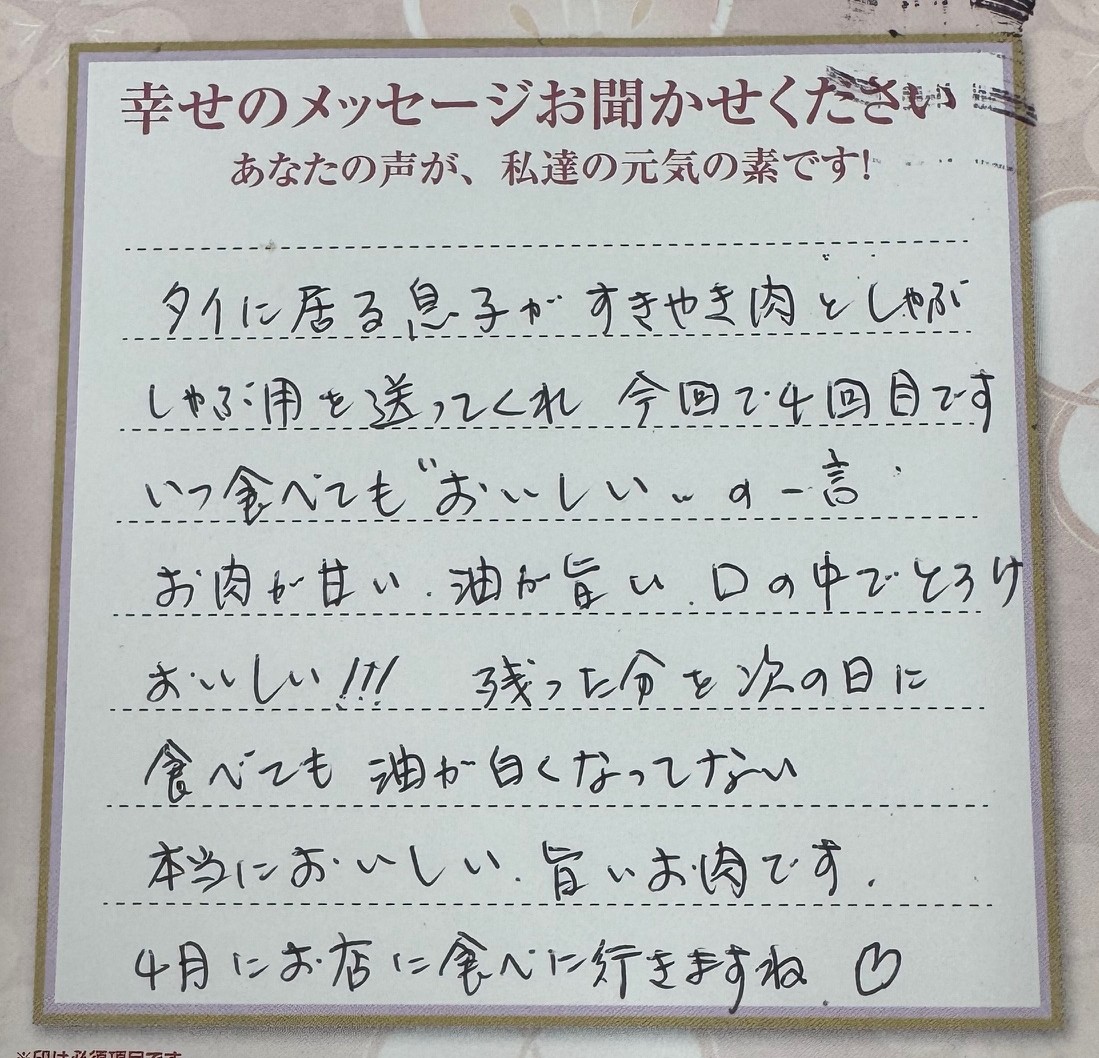 幸せのメッセージお聞かせください
あなたの声が、私達の元気の素です!
タイに居る息子がすきやき肉としゃぶ
しゃぶ用を送ってくれ 今回で4回目です
いつ食べても"おいしい"の一言
お肉が甘い.油が旨い.口の中でとろけ
おいしい!!! 残った分を次の日に
食べても油が白くなってない
本当においしい.旨いお肉です.
4月にお店に食べに行きますね.♡
※印は必須項目です